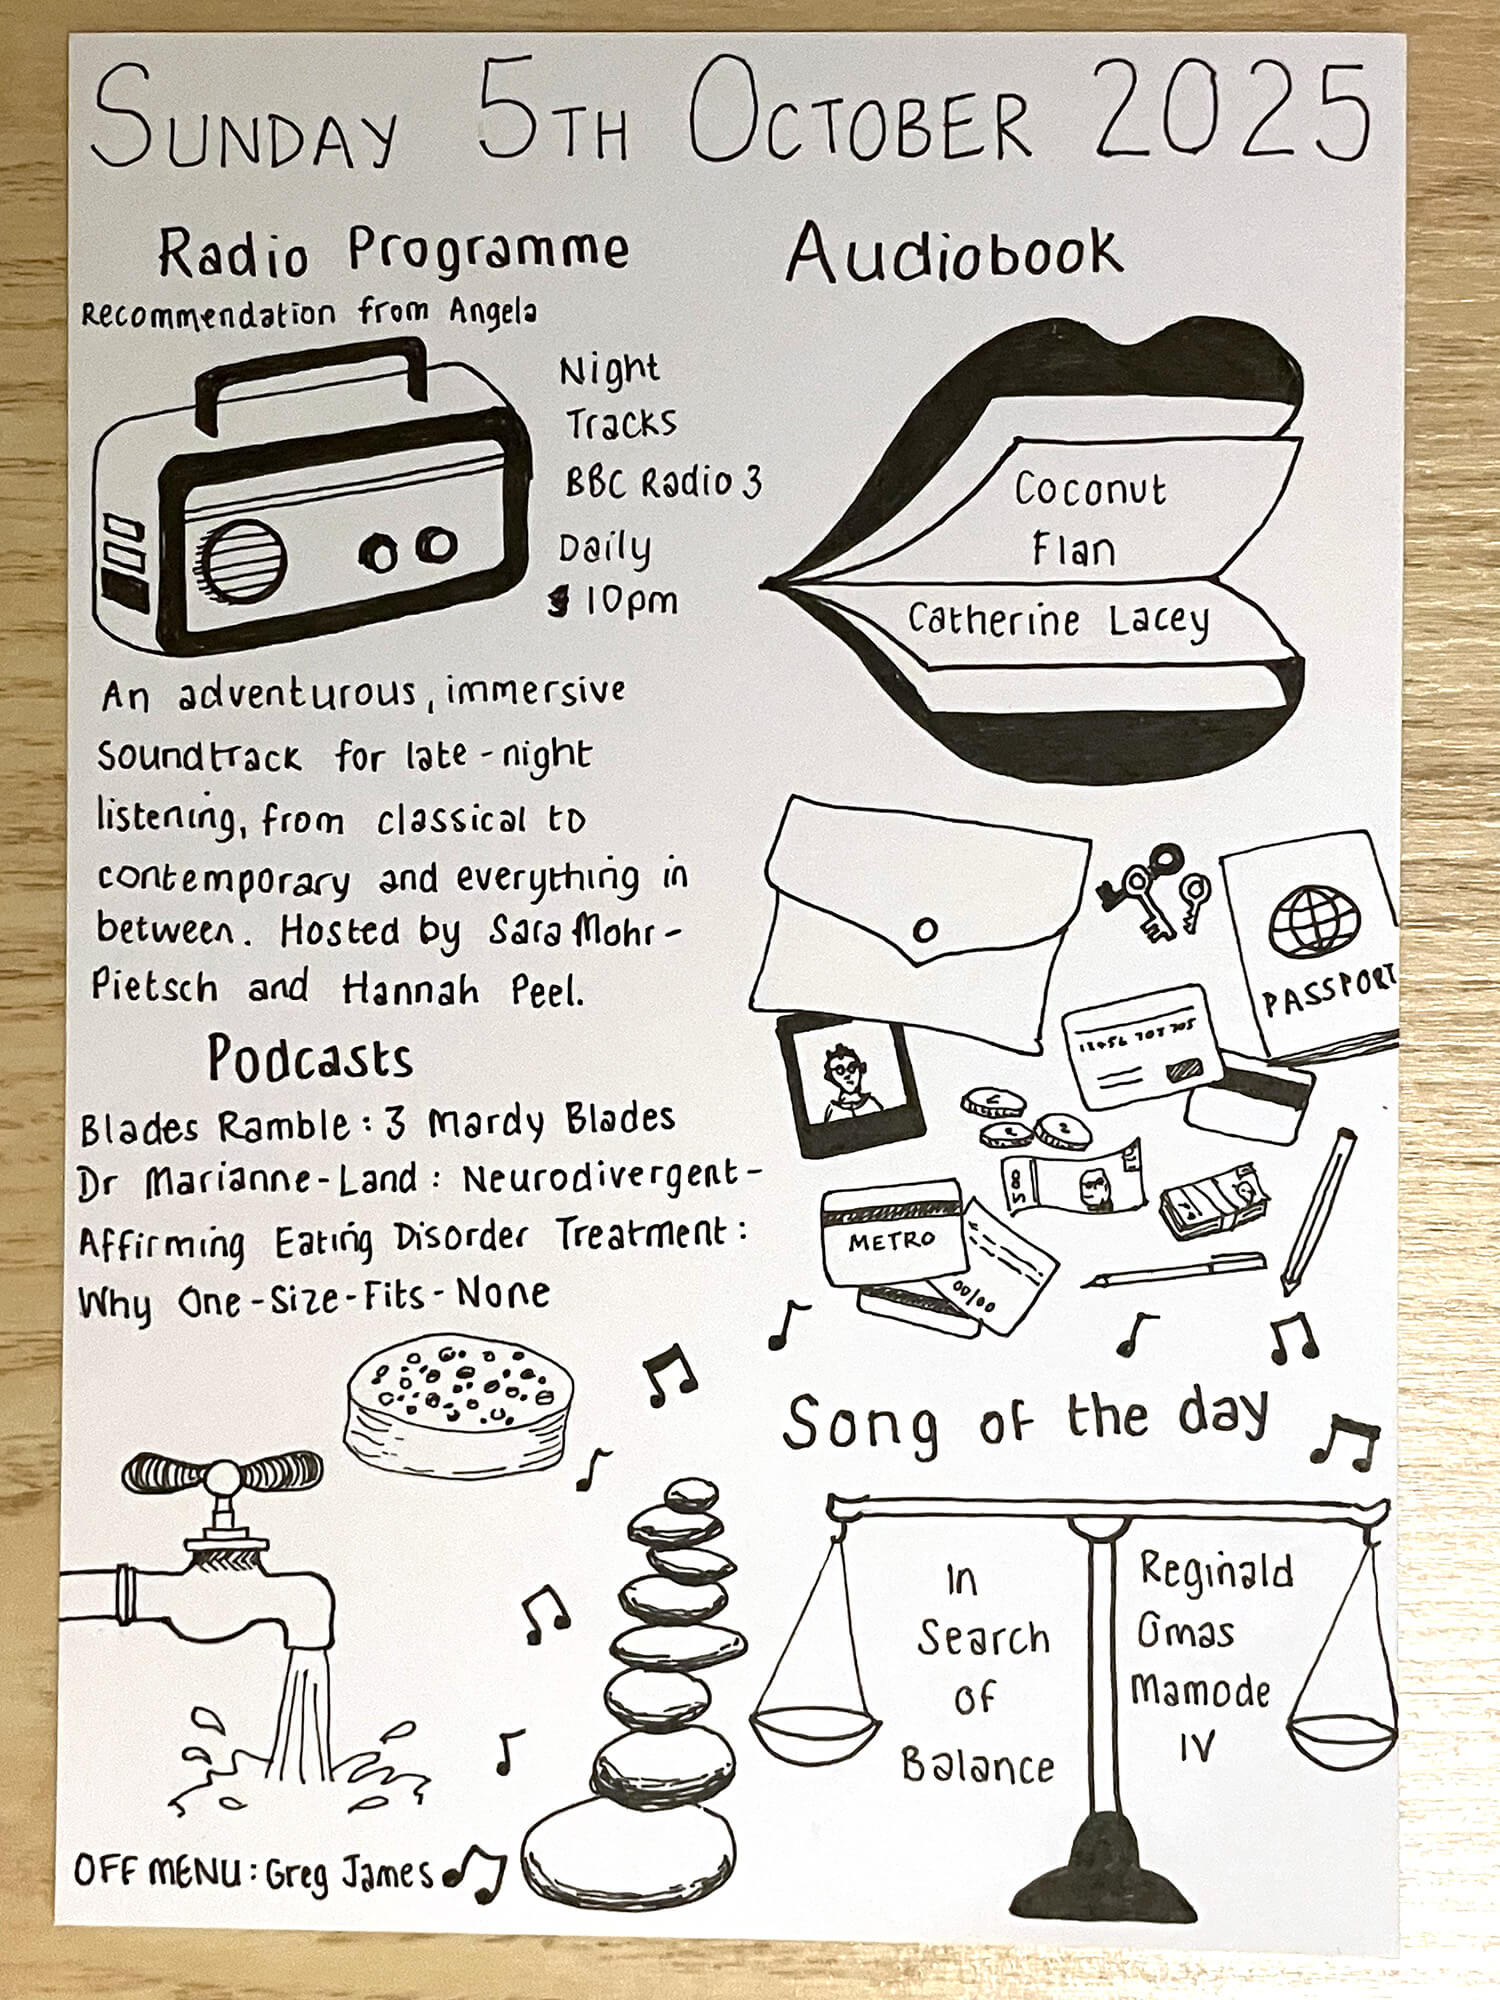 SUNDAY 5TH OCTOBER 2025
Radio Programme
Recommendation from Angela
Night
Tracks
BBC Radio 3
Daily
10pm
An adventurous, immersive
soundtrack for late-night
listening, from classical to
contemporary and everything in
between. Hosted by Sara Mohr-
Pietsch and Hannah Peel.
Podcasts
Blades Ramble: 3 Mardy Blades
Dr Marianne-Land: Neurodivergent-
Affirming Eating Disorder Treatment:
Why One-Size-Fits-None
OFF MENU: Greg James
Audiobook
Coconut
Flan
Catherine Lacey
PASSPORT
METRO
00/00
Song of the day
In
Search
of
Balance
Reginald
Omas
Mamode
IV